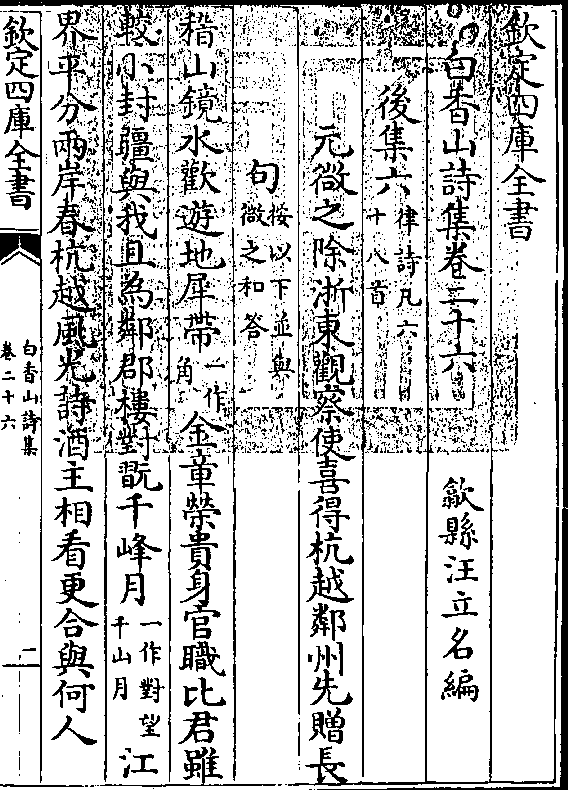 欽定四庫全書
白香山詩集卷二十六
歙縣汪立名編
後集六律詩凡六十八首
元微之除浙東觀察使喜得杭越鄰州先贈長
句按以下並與微之和答
稽山鏡水歡遊地犀帶一作角金章榮貴身官職比君雖
較小封疆與我且為鄰郡樓對翫千峰月一作對望千山月江
界平分兩岸春杭越風光詩酒主相看更合與何人
欽定四庫全書
白香山詩集
卷二十六